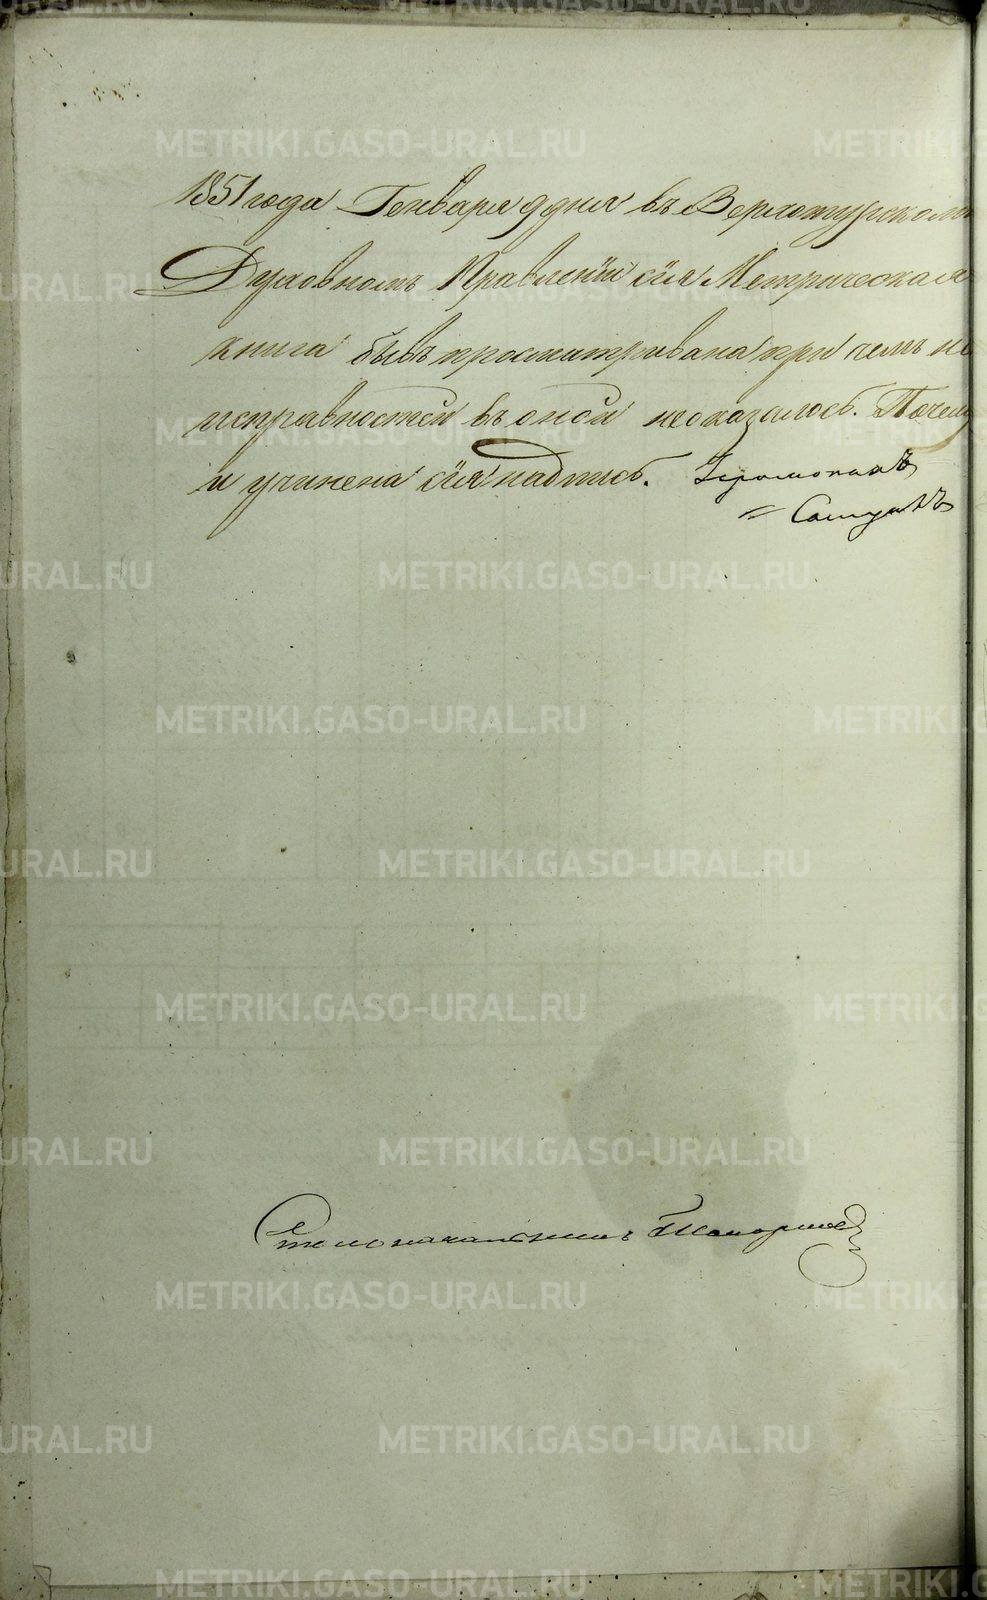 1851 года Генваря 9 дня въ Верхотурскомъ
Духовномъ Правленіи сія Метрическая
книга бывъ просматривана при чемъ не
исправностей въ оной неоказалось. Почему
и учинена сія надпись. Іеромонахъ
Столоначальникъ Топорковъ
METRIKI.GASO-URAL.RU